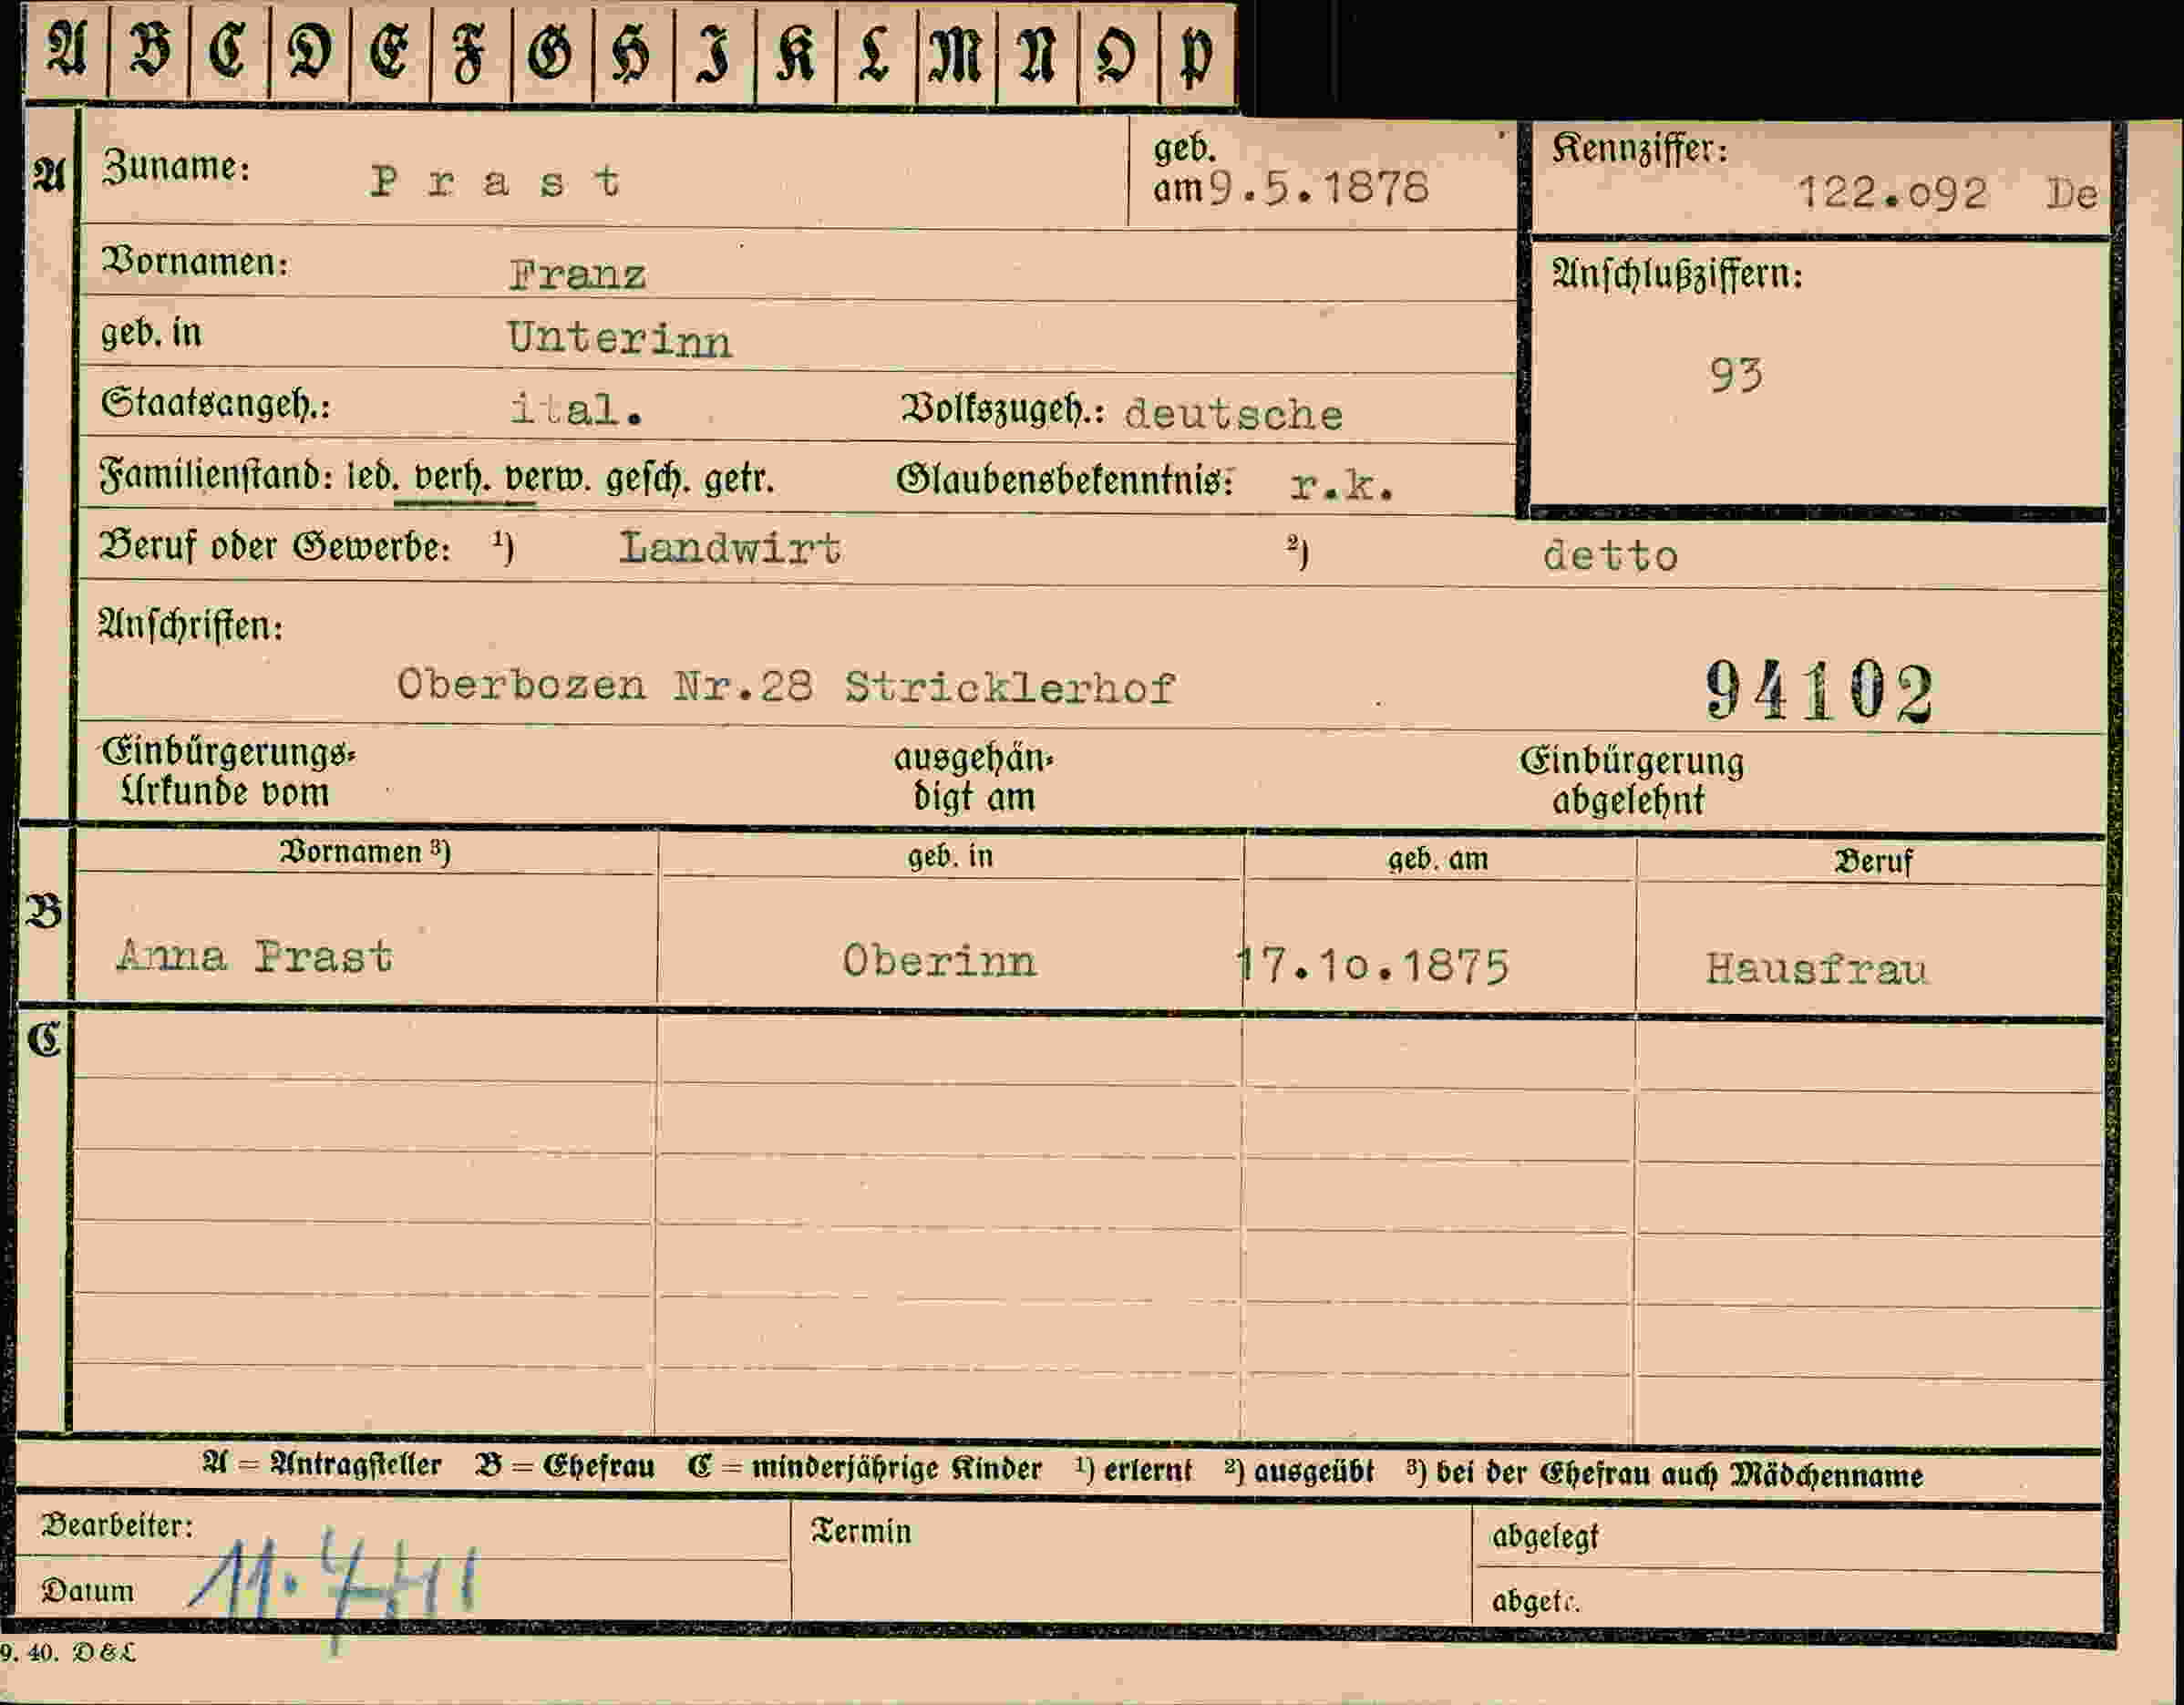 A B C D E F G H I K L M N O P
A Zuname: Prast geb. am 9.5.1878 Kennziffer: 122.o92 De
Vornamen: Franz Anschlußziffern:
geb. in Unterinn 93
Staatsangeh.: ital. Volkszugeh.: deutsche
Familienstand: led. verh. verw. gesch. getr. Glaubensbekenntnis: r.k.
Beruf oder Gewerbe: ¹) Landwirt ²) detto
Anschriften:
Oberbozen Nr.28 Stricklerhof 94102
Einbürgerungs- ausgehän- Einbürgerung
Urkunde vom digt am abgelehnt
Vornamen ³) geb. in geb. am Beruf
B Anna Prast Oberinn 17.1o.1875 Hausfrau
C
A = Antragsteller B = Ehefrau C = minderjährige Kinder ¹) erlernt ²) ausgeübt ³) bei der Ehefrau auch Mädchenname
Bearbeiter: Termin abgelegt
Datum 11.7.41 abgetr.
9. 40. D & L